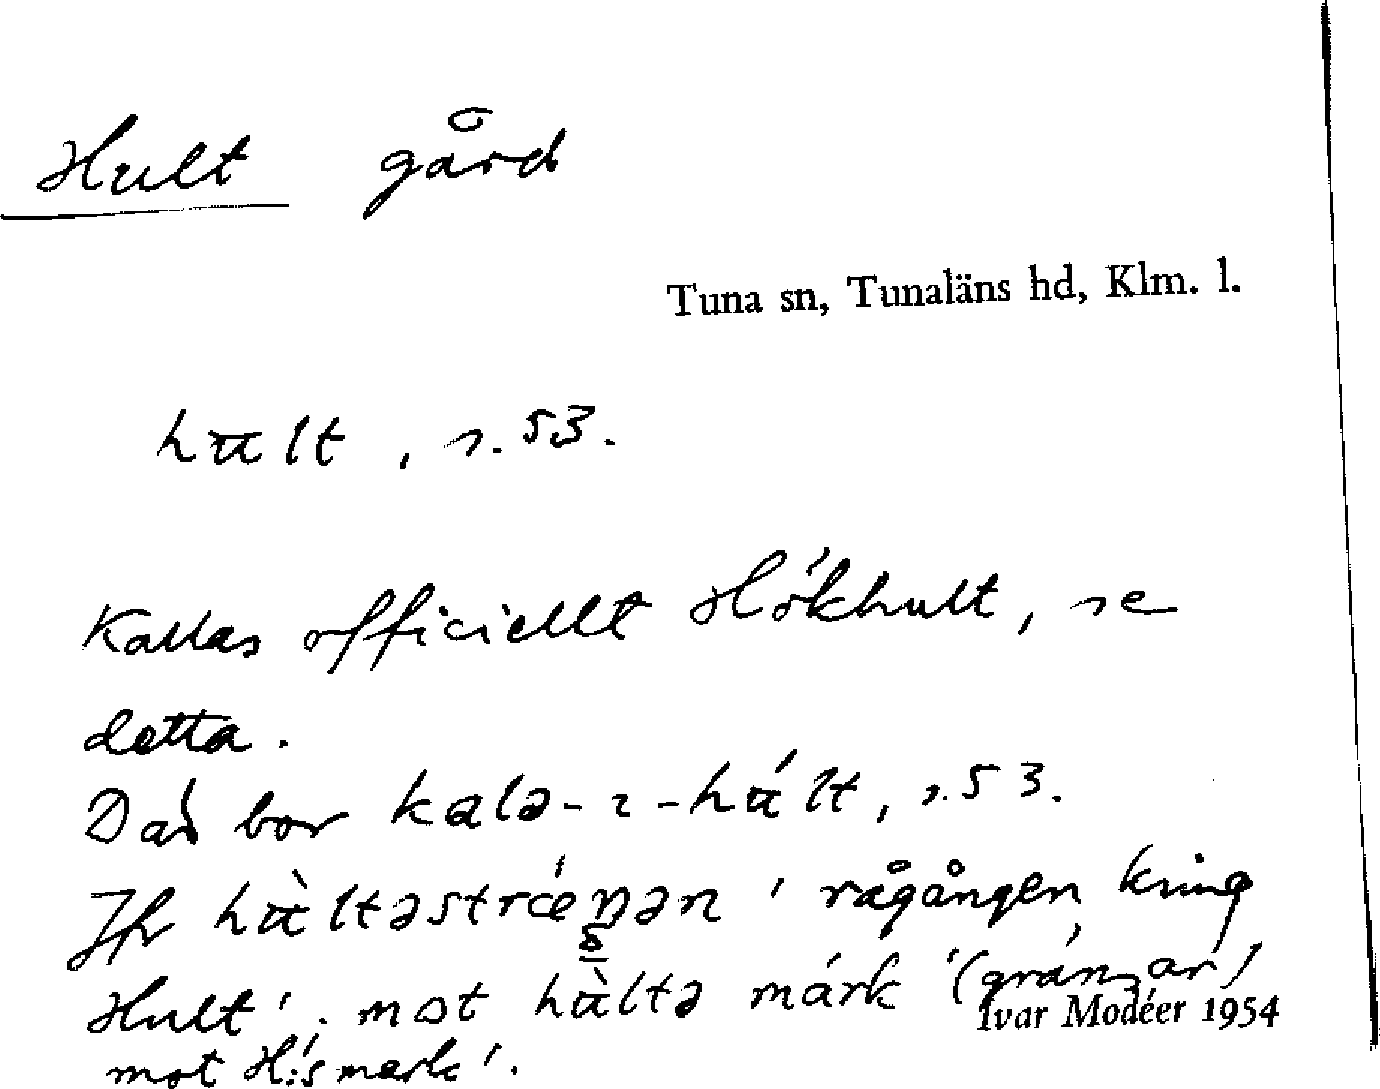 Hult gård
Tuna sn, Tunaläns hd, Klm. l.
hult, s. 53.
Kallas officiellt Hökhult, se
detta.
Där bor kalə-ɩ-húlt, s. 53.
Jfr hùltəstrǽŋən 'rågången kring
Hult'; mot hùltə márk '(gränsar)
Ivar Modéer 1954
mot H:s mark'.